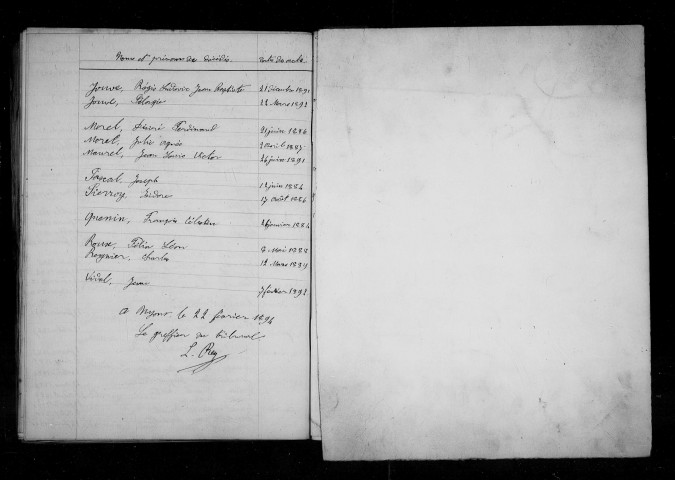 Noms et prénoms des décédés date des actes
Jouve, Régis Ludovic Jean Baptiste 21 Décembre 1891
Jouve, Pélagie 22 Mars 1892
Morel, Désiré Ferdinand 21 juin 1886
Morel, Julie Agnès 2 avril 1887
Maurel, Jean Louis Victor 26 juin 1891
Pascal, Joseph 12 juin 1884
Pierroy, Isidore 17 Août 1886
Quenin, François Célestin 1884
Roux, Félix Léon Mai
Reynier, Charles 12 Mars
Vidal, Jean 7 février 1892
à Nyons le 22 février 1894
Le greffier du tribunal
L. Rey